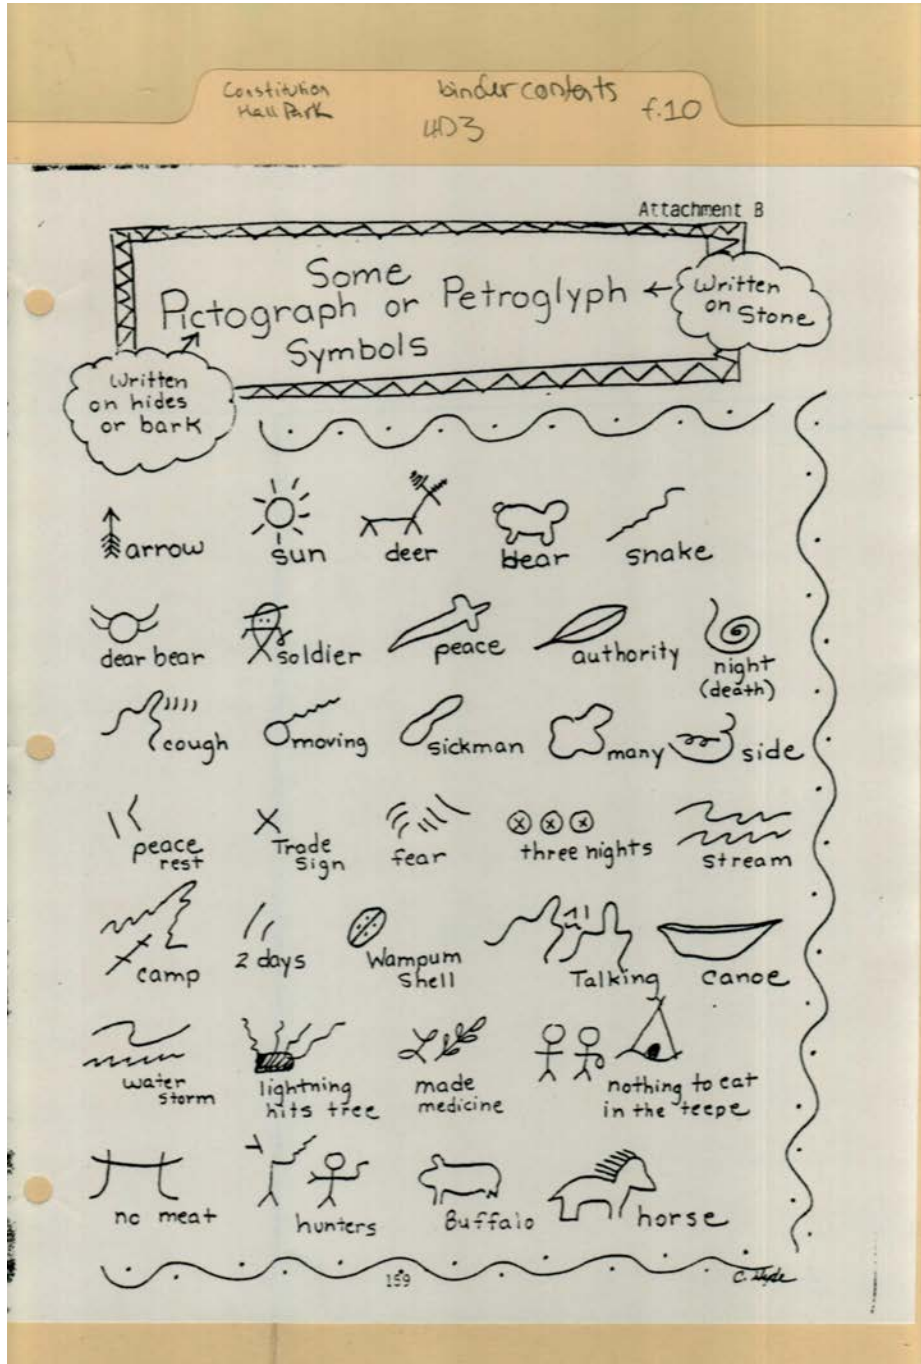 Constitution
Hall Park
binder contents
4D3
f.10
Attachment B
Some
Pictograph or Petroglyph
Symbols
Written
on Stone
Written
on hides
or bark
arrow
sun
deer
bear
snake
dear bear
soldier
peace
authority
night
(death)
cough
moving
sickman
many
side
peace
rest
Trade
Sign
fear
three nights
stream
camp
2 days
Wampum
Shell
Talking
canoe
water
storm
lightning
hits tree
made
medicine
nothing to eat
in the teepe
no meat
hunters
Buffalo
horse
159
C. Hyde